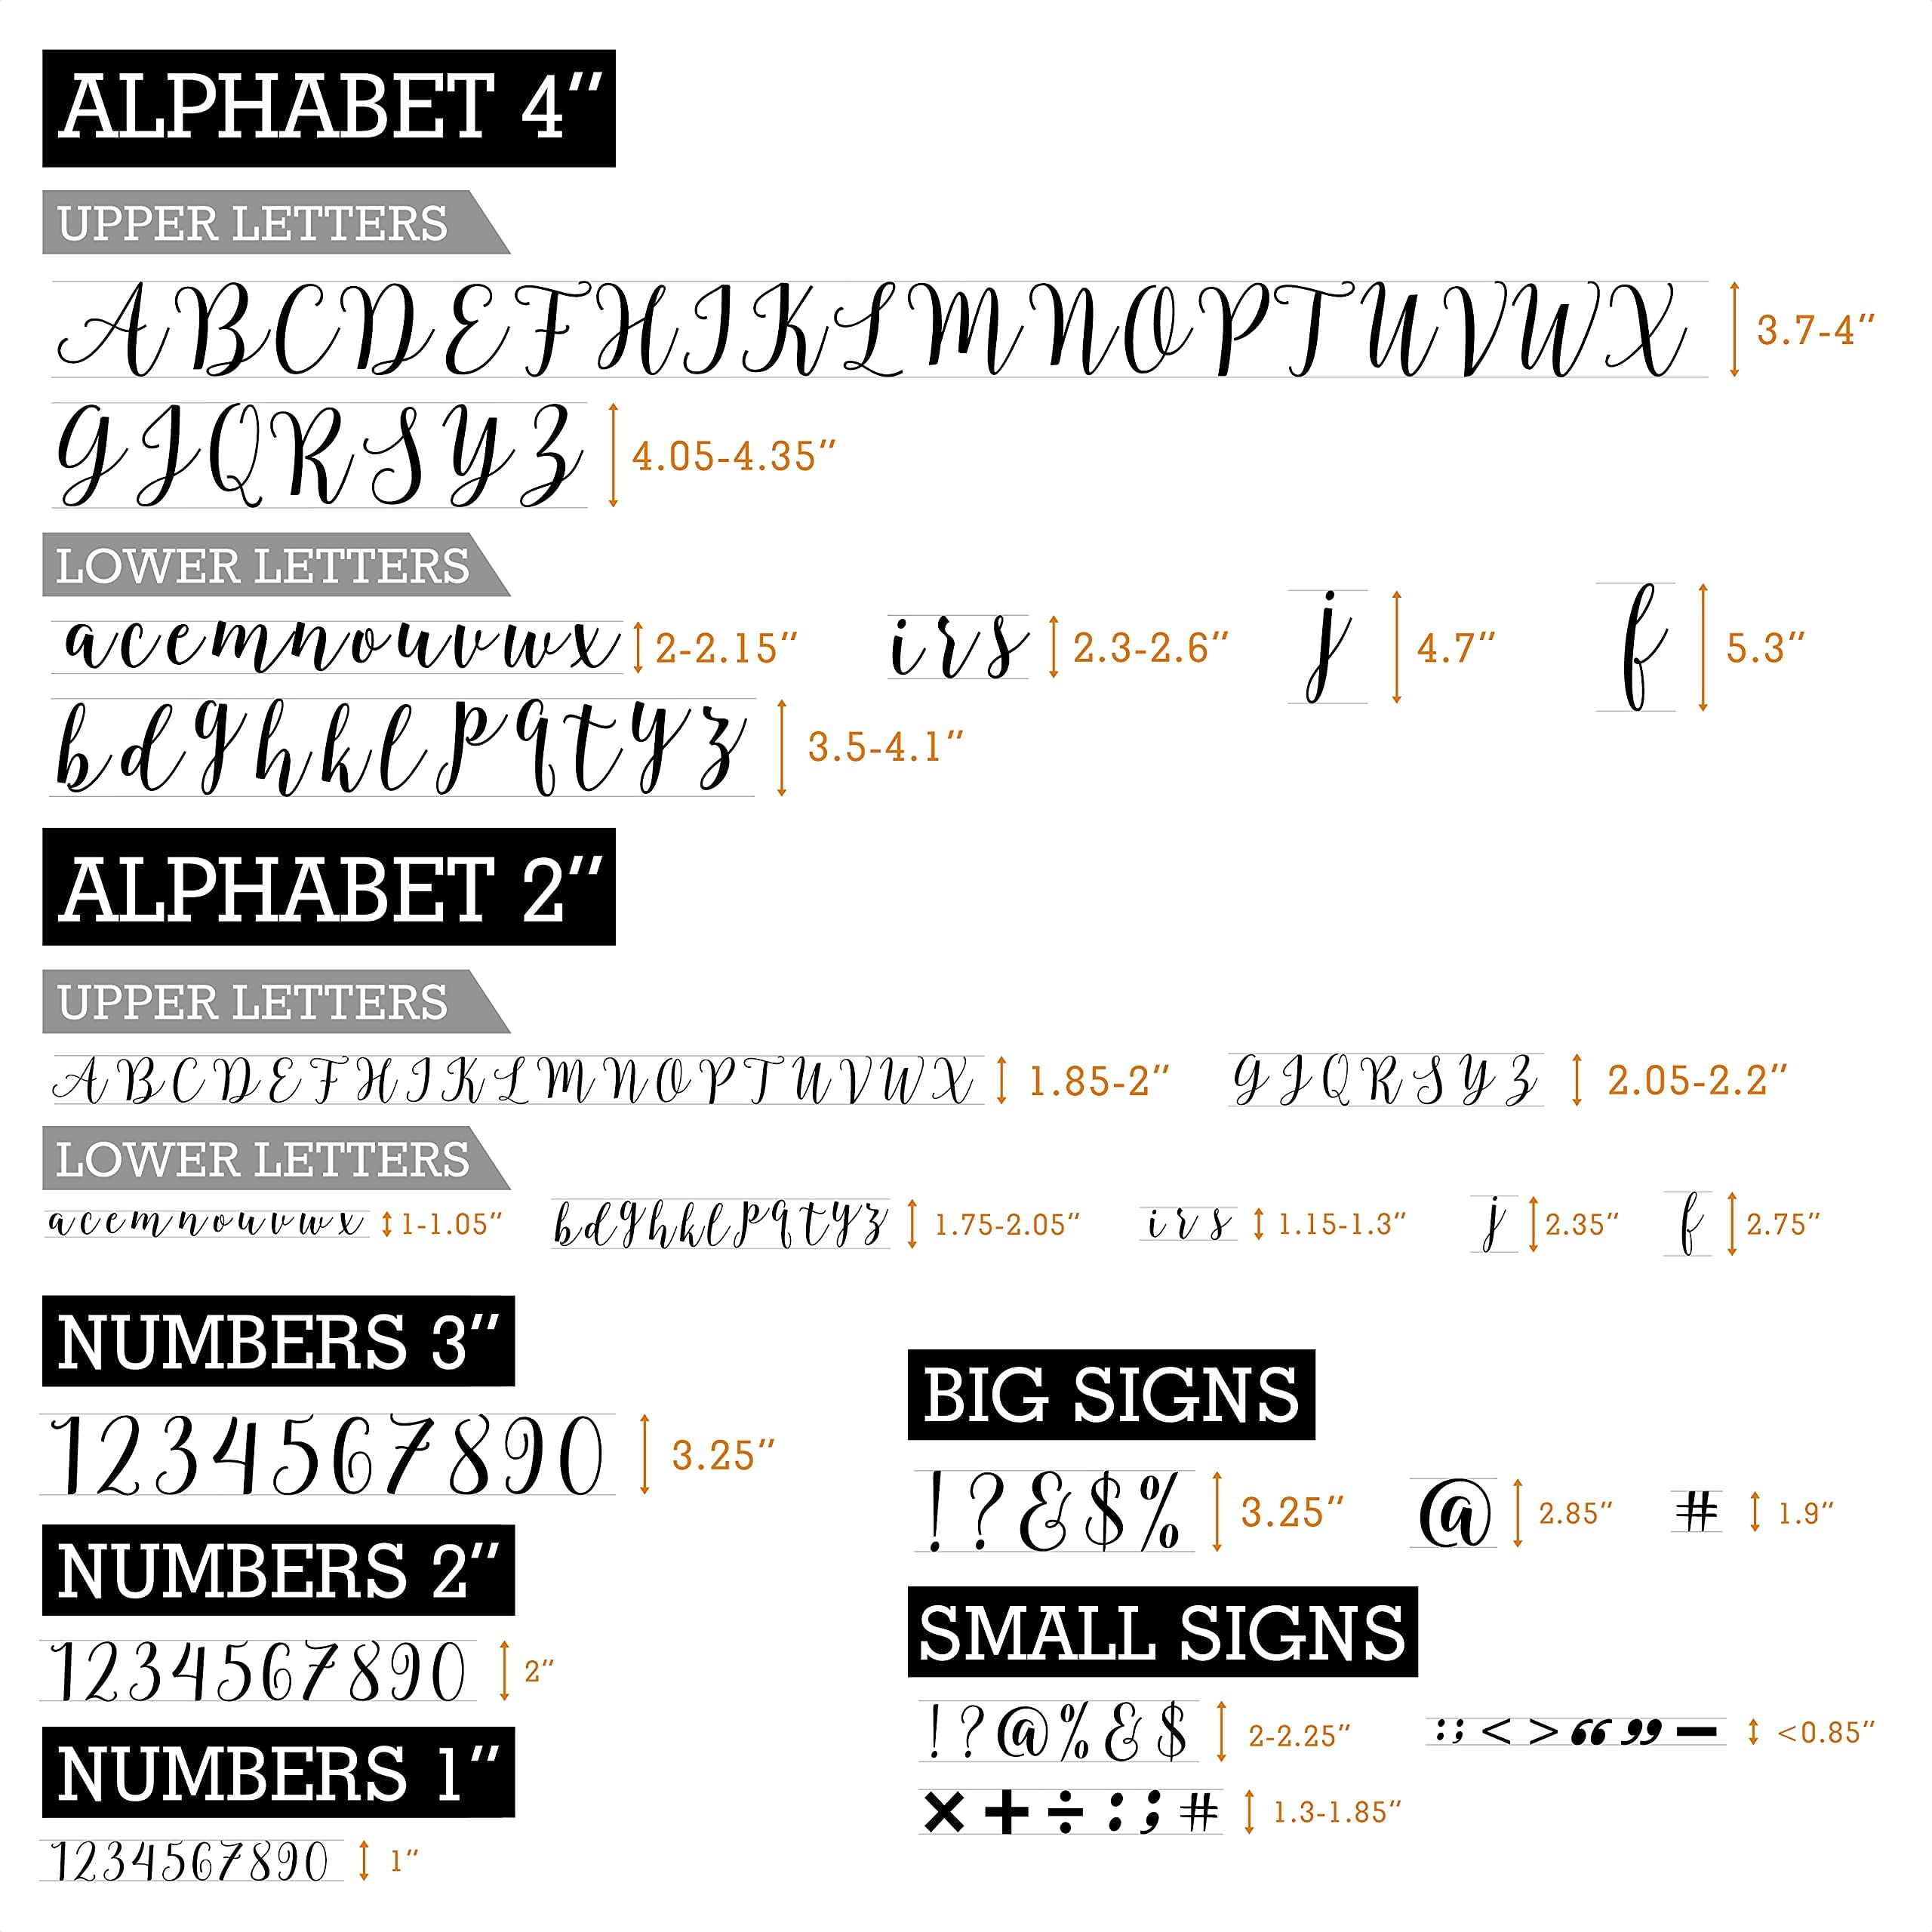 ALPHABET 4”
UPPER LETTERS
ABCDEFHIKLMNOPTUVWX 3.7-4”
GJQRSYZ 4.05-4.35”
LOWER LETTERS
acemnouvwx 2-2.15” irs 2.3-2.6” j 4.7” f 5.3”
bdghklpqtyz 3.5-4.1”
ALPHABET 2”
UPPER LETTERS
ABCDEFHIKLMNOPTUVWX 1.85-2” GJQRSYZ 2.05-2.2”
LOWER LETTERS
acemnouvwx 1-1.05” bdghklpqtyz 1.75-2.05” irs 1.15-1.3” j 2.35” f 2.75”
NUMBERS 3”
1234567890 3.25”
NUMBERS 2”
1234567890 2”
NUMBERS 1”
1234567890 1”
BIG SIGNS
!?&$% 3.25” @ 2.85” # 1.9”
SMALL SIGNS
!?@%&$ 2-2.25” :;<>“”− <0.85”
×+÷:;# 1.3-1.85”